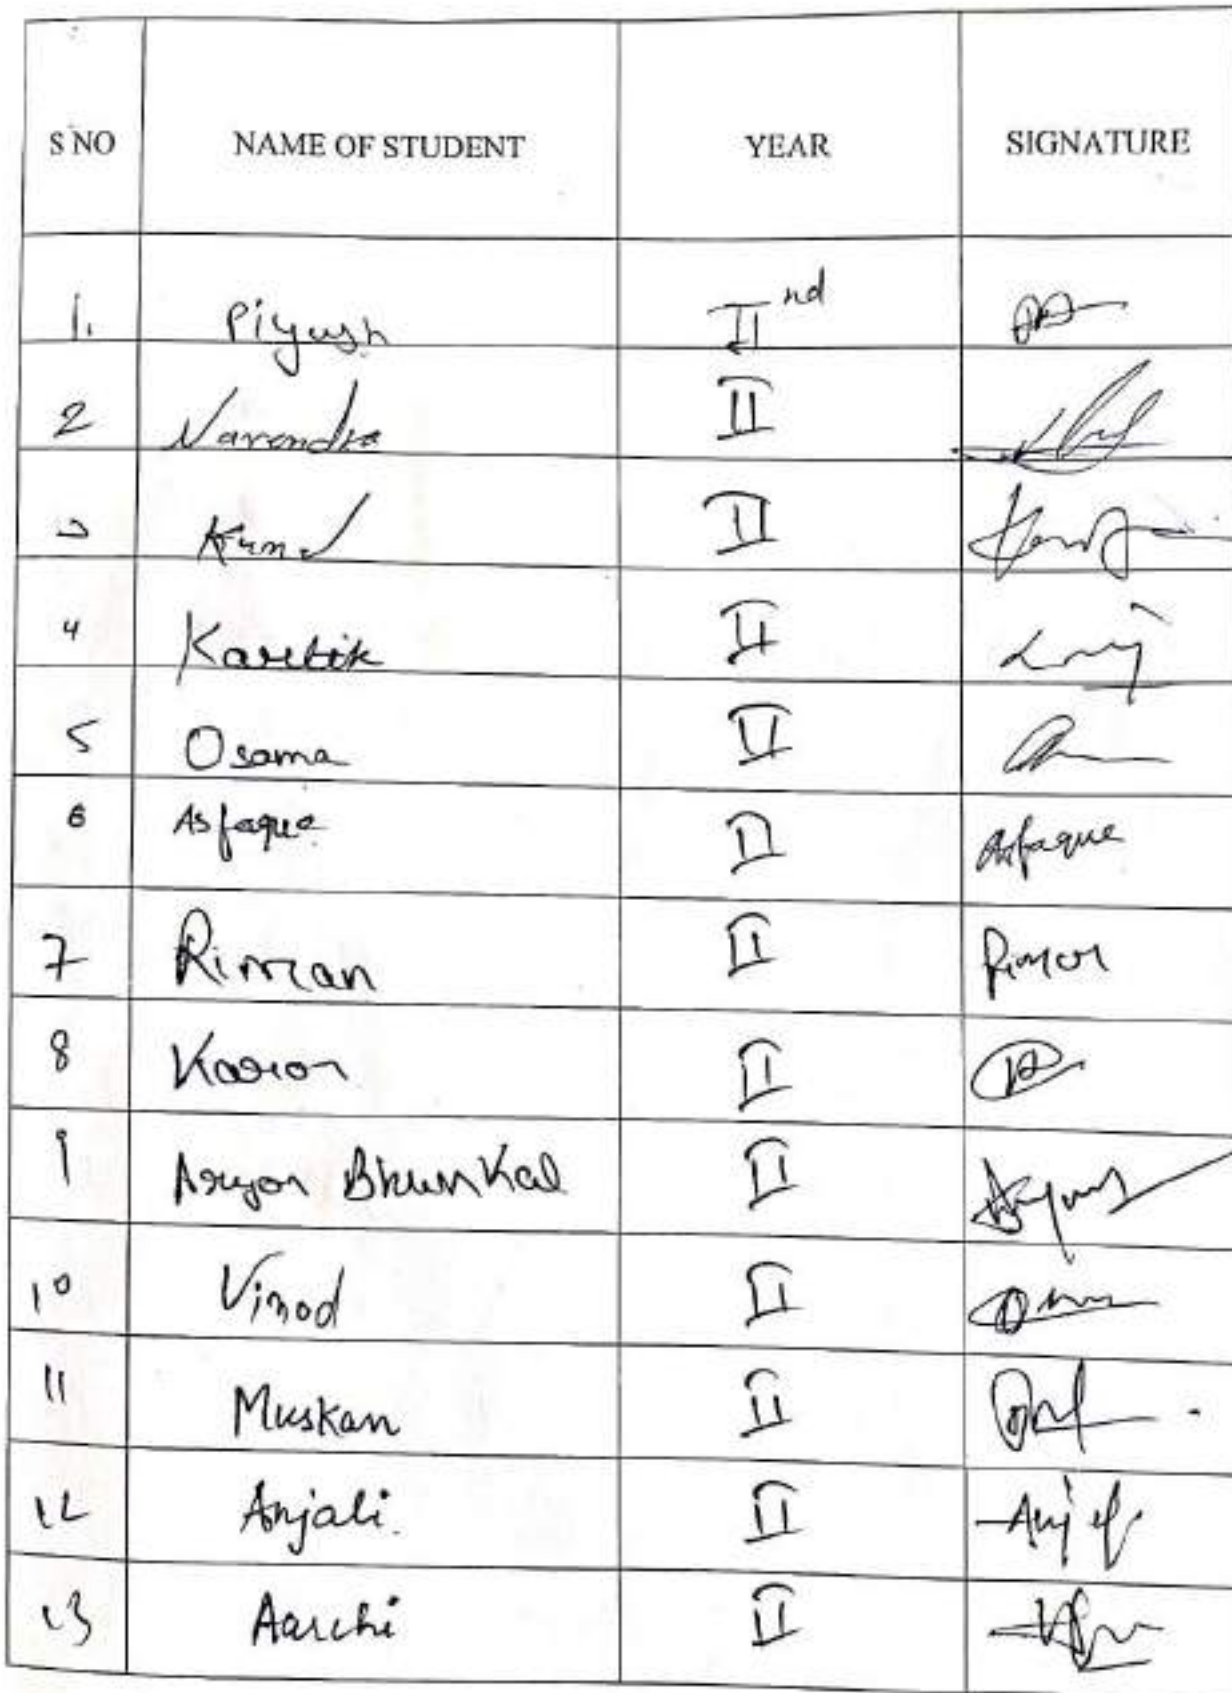 S NO NAME OF STUDENT YEAR SIGNATURE
1. Piyush IInd
2 Narendra II
3 II
4 Kartik II
5 Osama II
6 Asfaque II Asfaque
7 Riman II Riman
8 Karan II
9 Aryan Bhunkal II
10 Vinod II
11 Muskan II
12 Anjali. II
13 Aarchi II